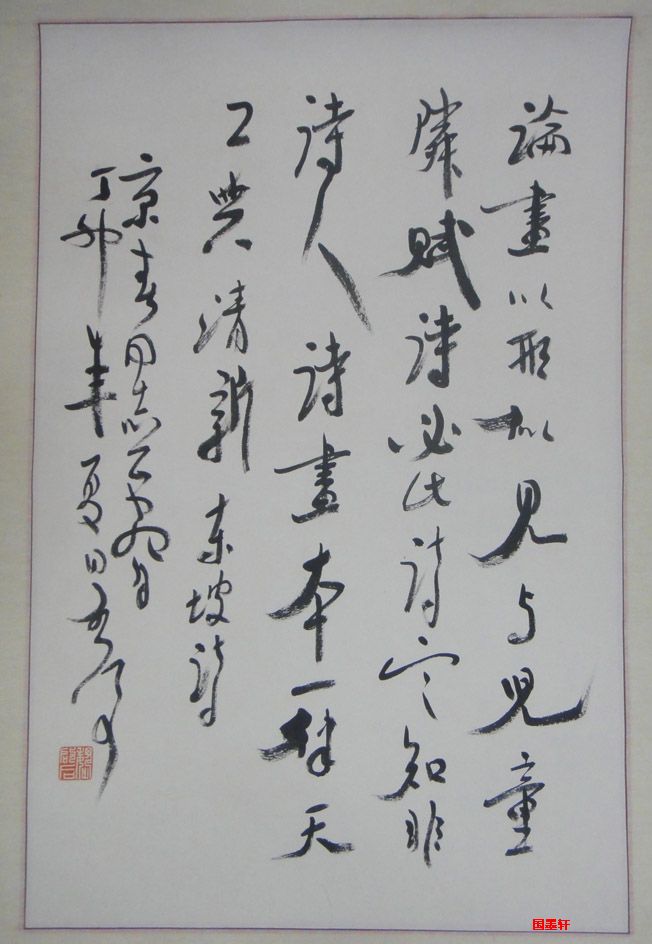 論畫以形似見与兒童
隣賦詩必此詩定知非
詩人詩畫本一律天
工與清新東坡詩
春同志正
丁卯年夏日启后
国墨轩